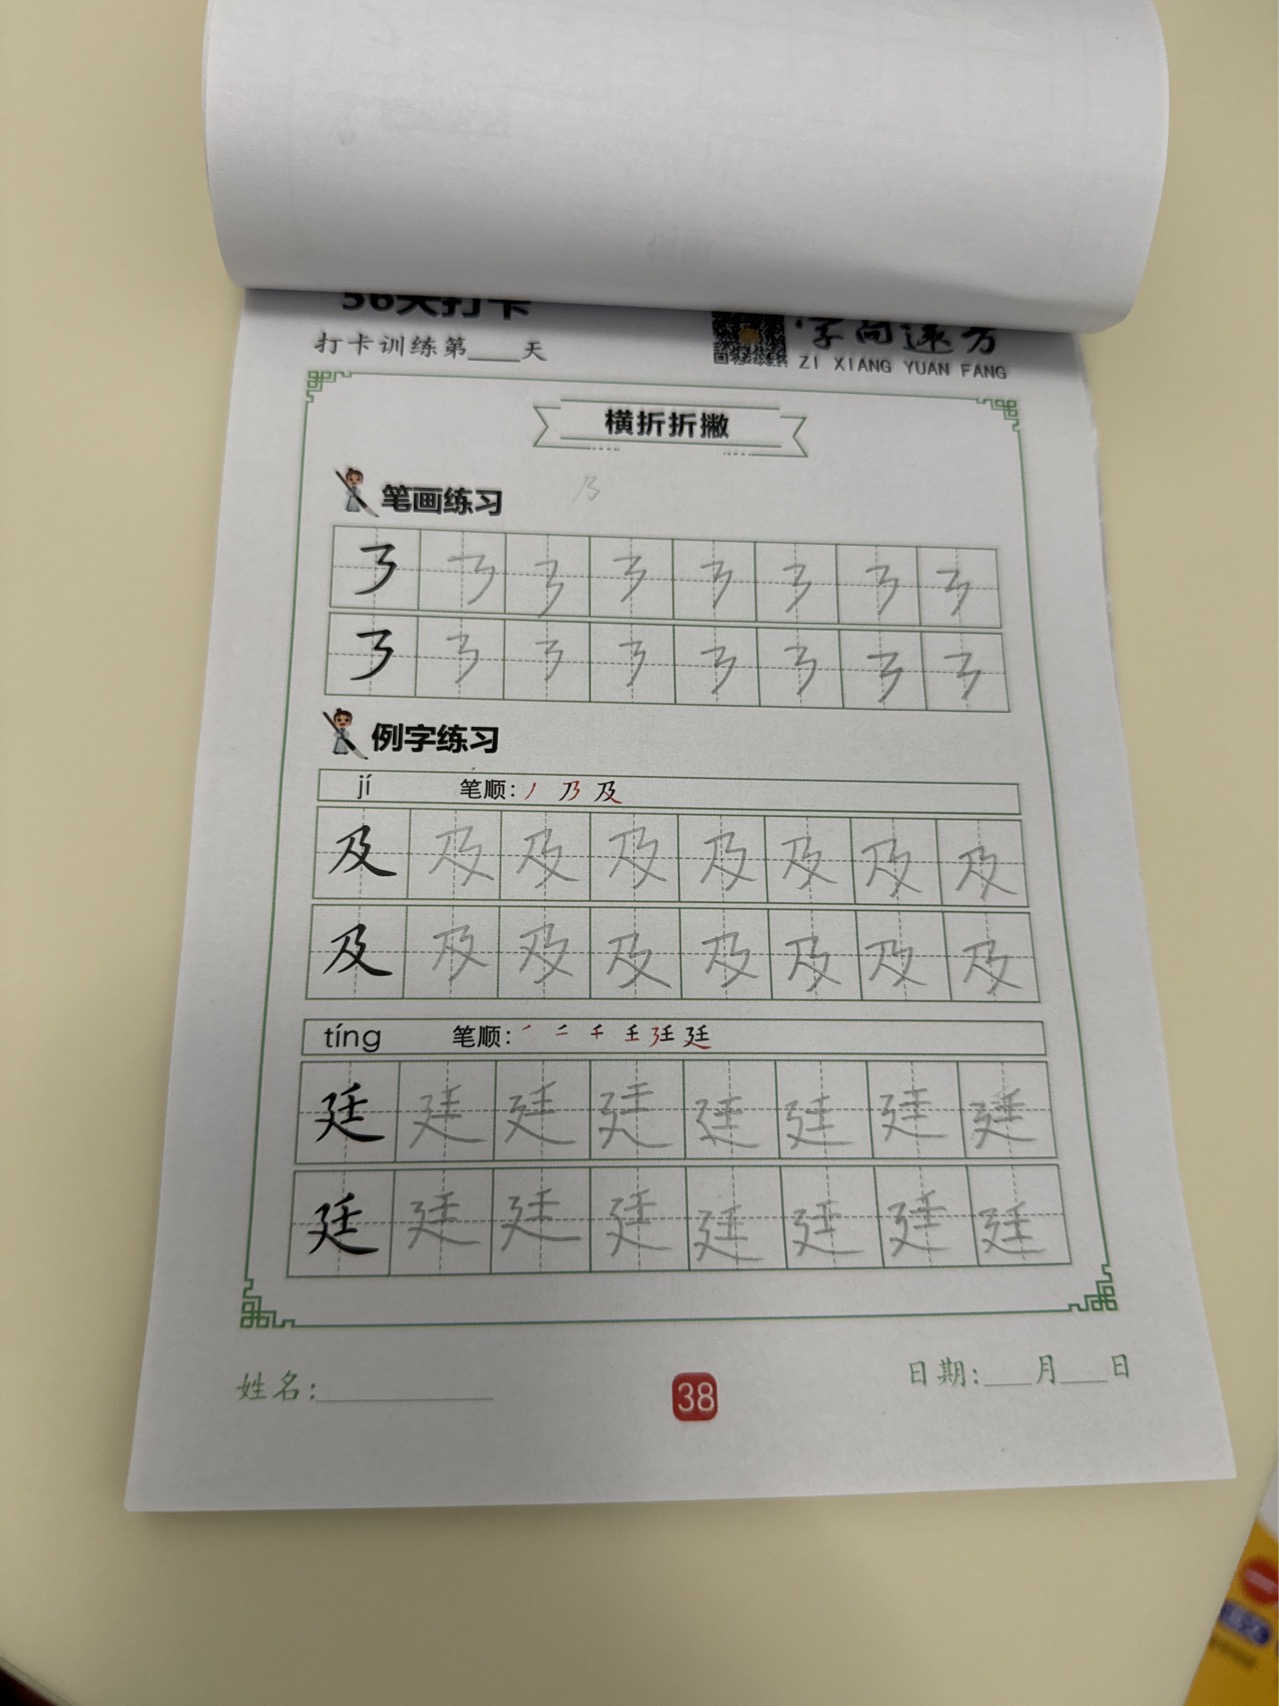 56天打卡
打卡训练第____天
字向远方
ZI XIANG YUAN FANG
横折折撇
笔画练习
乃
㇋ ㇋ ㇋ ㇋ ㇋ ㇋ ㇋ ㇋
㇋ ㇋ ㇋ ㇋ ㇋ ㇋ ㇋ ㇋
例字练习
jí 笔顺: 丿 乃 及
及 及 及 及 及 及 及 及
及 及 及 及 及 及 及 及
tíng 笔顺:
廷 廷 廷 廷 廷 廷 廷 廷
廷 廷 廷 廷 廷 廷 廷 廷
姓名:____________
38
日期:___月___日